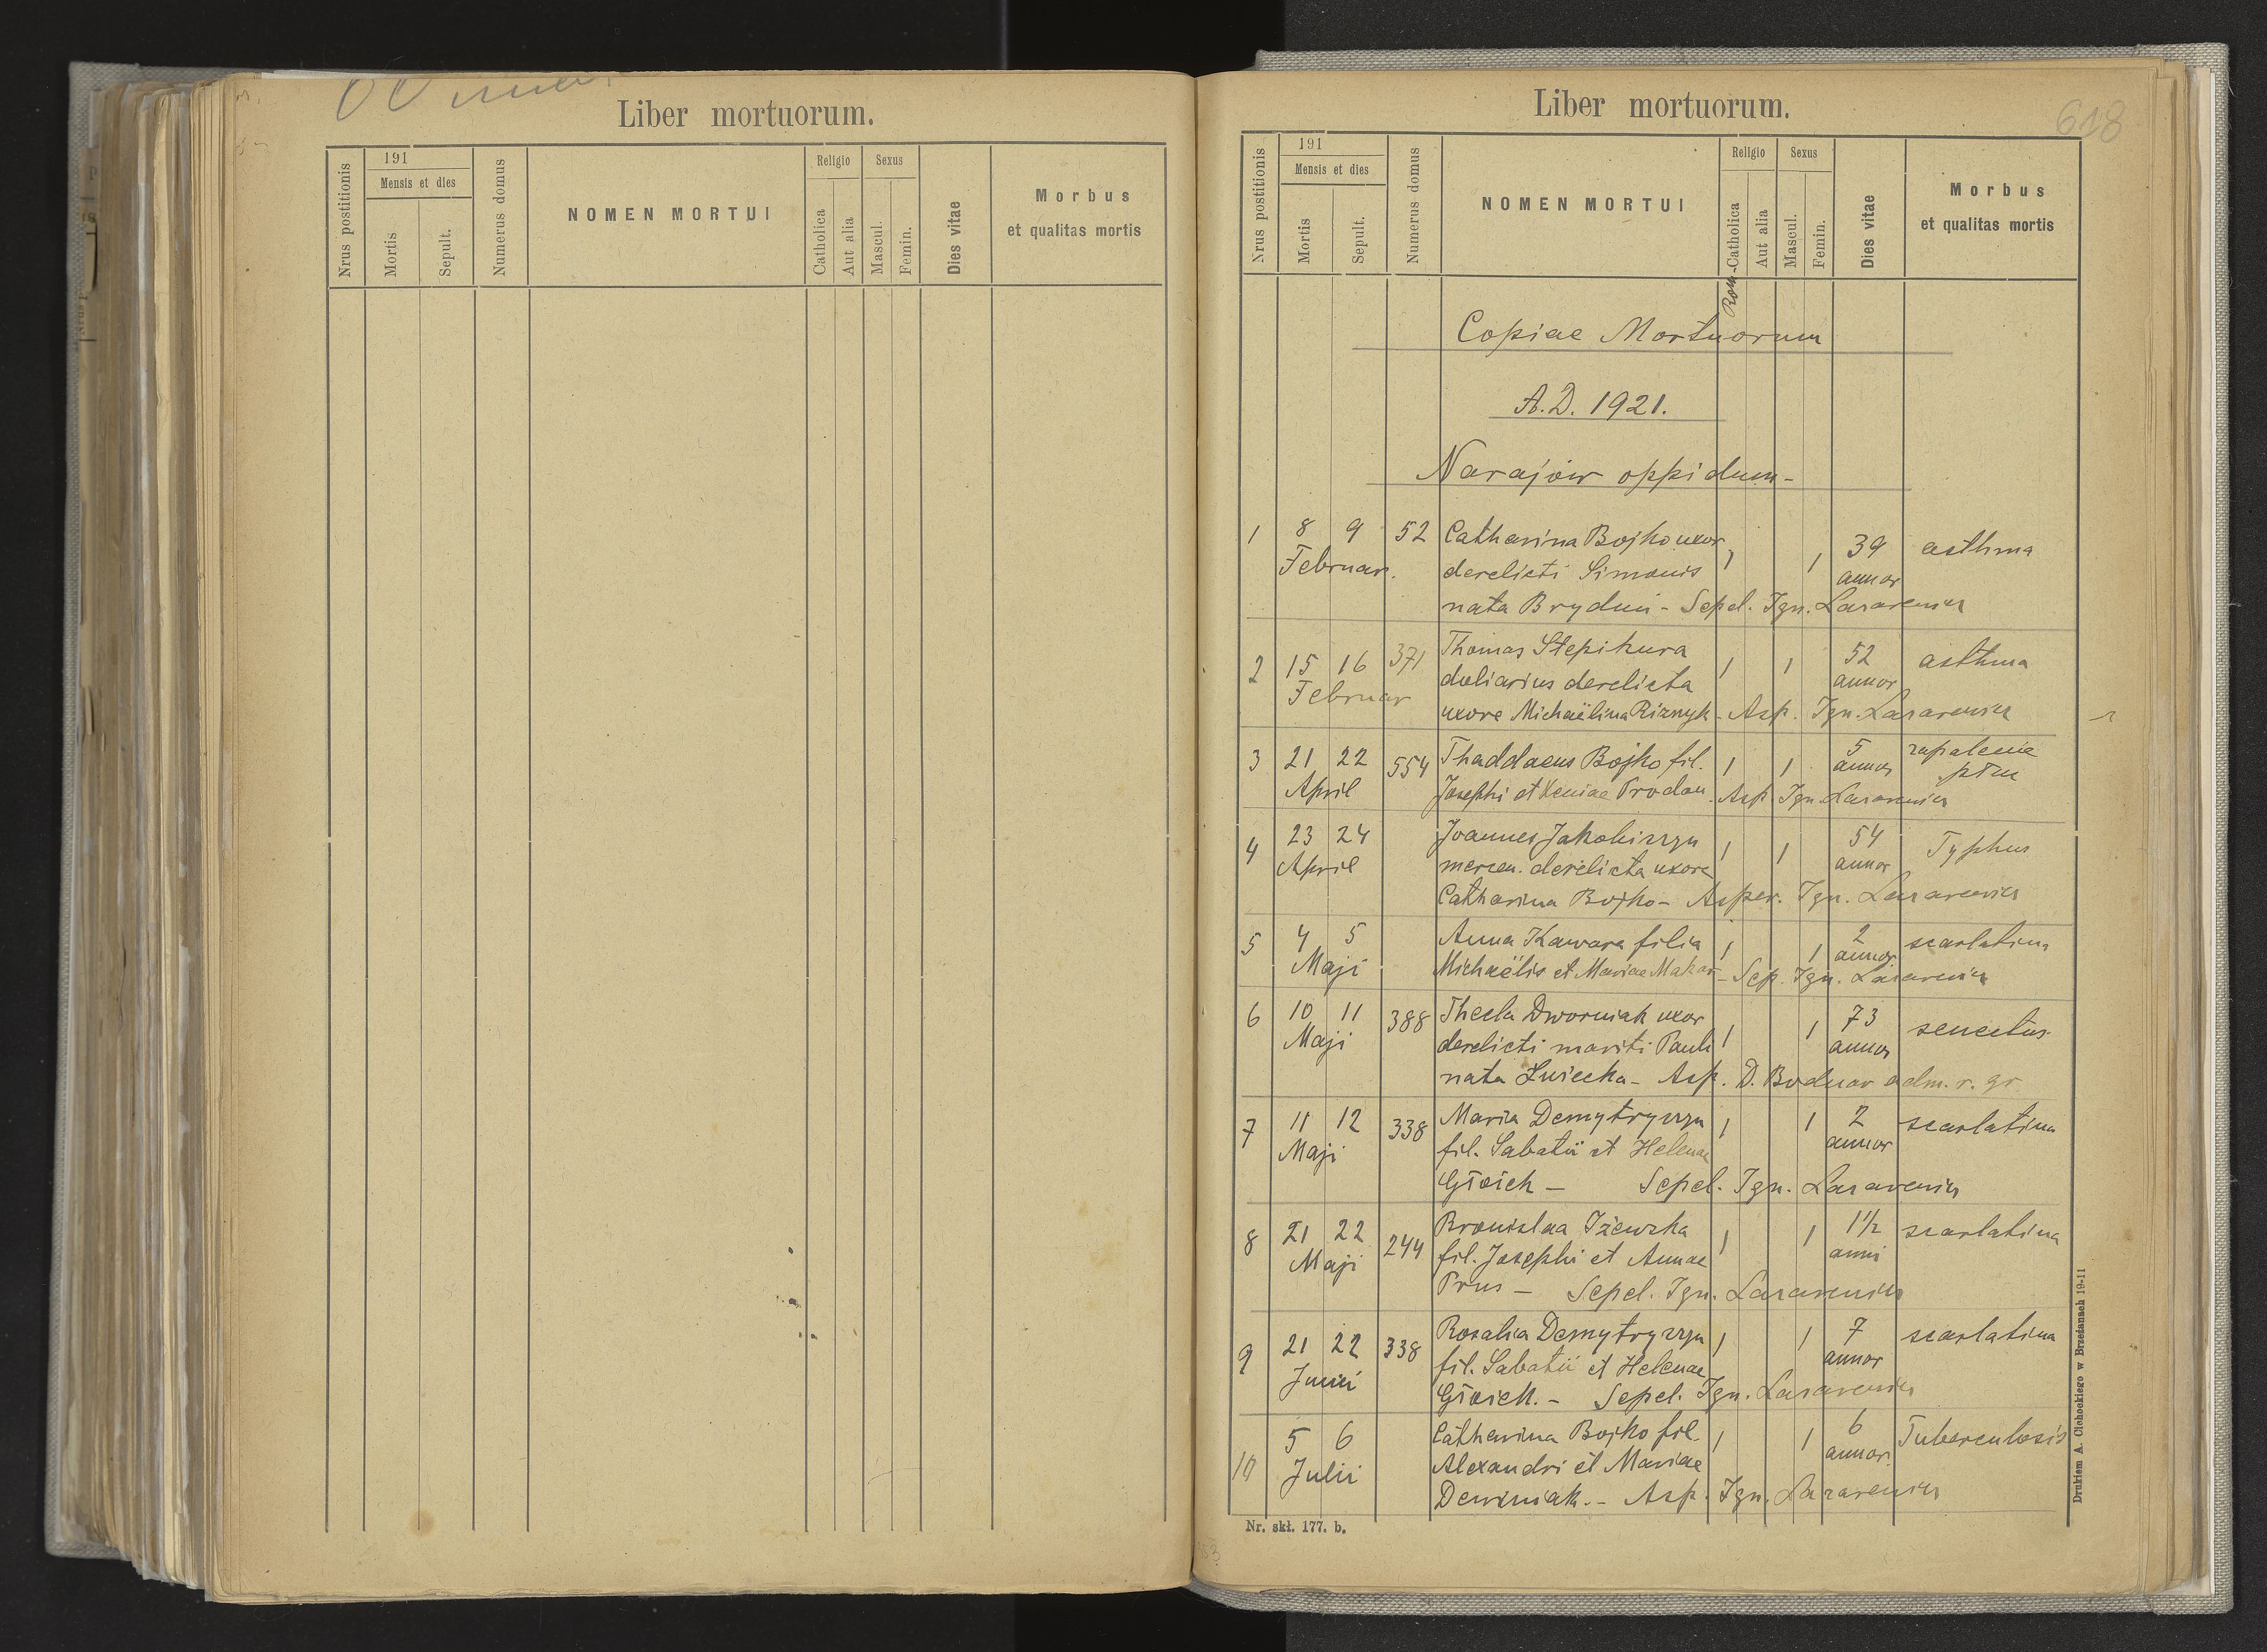 Liber mortuorum.
Nrus postitionis
191
Mensis et dies
Mortis
Sepult.
Numerus domus
NOMEN MORTUI
Religio
Catholica
Aut alia
Sexus
Mascul.
Femin.
Dies vitae
Morbus
et qualitas mortis
Liber mortuorum.
618
Nrus postitionis
191
Mensis et dies
Mortis
Sepult.
Numerus domus
NOMEN MORTUI
Religio
Rom-Catholica
Aut alia
Sexus
Mascul.
Femin.
Dies vitae
Morbus
et qualitas mortis
Copiae Mortuorum
A.D. 1921.
Narajów oppidum-
1 8 9 52 Catharina Bojko uxor 1 1 39 asthma
Februar. derelicti Simonis annor
nata - Sepel. Ign. Lazarewicz
2 15 16 371 Thomas Stepikura 1 1 52 asthma
Februar doliarius derelicta annor
uxore Michaëlina Riznyk - Asp. Ign. Lazarewicz
3 21 22 554 Thaddaeus Bojko fil. 1 1 5 annor zapalenie płuc
April Josephi et Xeniae Prodan. Asp. Ign. Lazarewicz
4 23 24 Joannes Jakobiszyn 1 1 54 Typhus
April mercen. derelicta uxore annor
Catharina Bojko - Asper. Ign. Lazarewicz
5 4 5 Anna Kawara filia 1 1 2 annor scarlatina
Maji Michaëlis et Mariae Makar - Sep. Ign. Lazarewicz
6 10 11 388 Thecla Dworniak uxor 1 1 73 senectus
Maji derelicti mariti Pauli annor
nata - Asp. D. Bodnar adm. r. gr
7 11 12 338 Maria Demytryszyn 1 1 2 scarlatina
Maji fil. Sabatii et Helenae annor
Głoich - Sepel. Ign. Lazarewicz
8 21 22 244 Bronislaa Iżewska 1 1 1½ scarlatina
Maji fil. Josephi et Annae anni
Prus - Sepel. Ign. Lazarewicz
9 21 22 338 Rosalia Demytryszyn 1 1 7 scarlatina
Junii fil. Sabatii et Helenae annor
Głoich. - Sepel. Ign. Lazarewicz
10 5 6 Catharina Bojko fil. 1 1 6 Tuberculosis
Julii Alexandri et Mariae annor.
Asp. Ign. Lazarewicz
Nr. skł. 177. b.
Drukiem A. Cichockiego w Brzeżanach 19-11